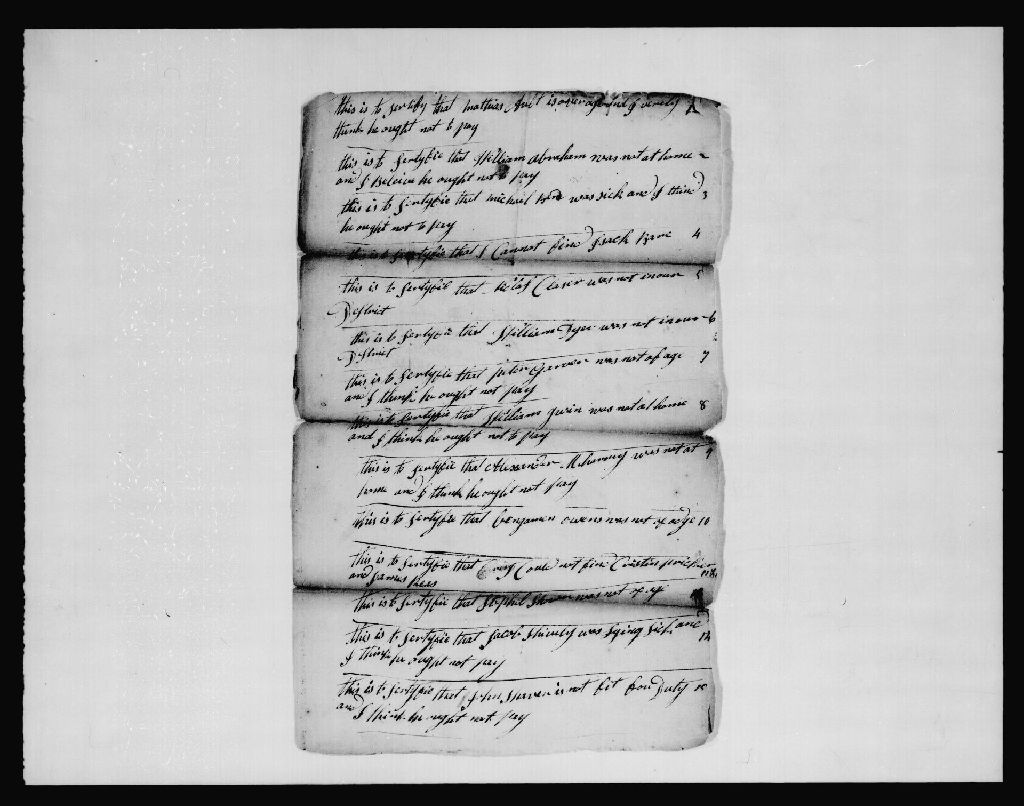 this is to sertyfy that mathias Ault is over age and I verely
think he ought not to pay
this is to sertyfie that William Abraham was not at home 2
and I Beleive he ought not to pay
this is to sertyfie that michael was sick and I think 3
he ought not to pay
this is to sertyfie that I Cannot find Isack 4
this is to sertyfie that Claser was not in our 5
District
this is to sertyfie that William Dyer was not in our 6
District
this is to sertyfie that peter was not of age 7
and I think he ought not pay
this is to sertyfie that William was not at home 8
and I think he ought not to pay
this is to sertyfie that Alexander was not at 9
home and I think he ought not pay
this is to sertyfie that benjamen owens was not of adge 10
this is to sertyfie that Could not find
and James
this is to sertyfie that was not of age
this is to sertyfie that Jacob Shively was lying sick and
I think he ought not pay
this is to sertyfie that John is not fit for Duty
and I think he ought not pay